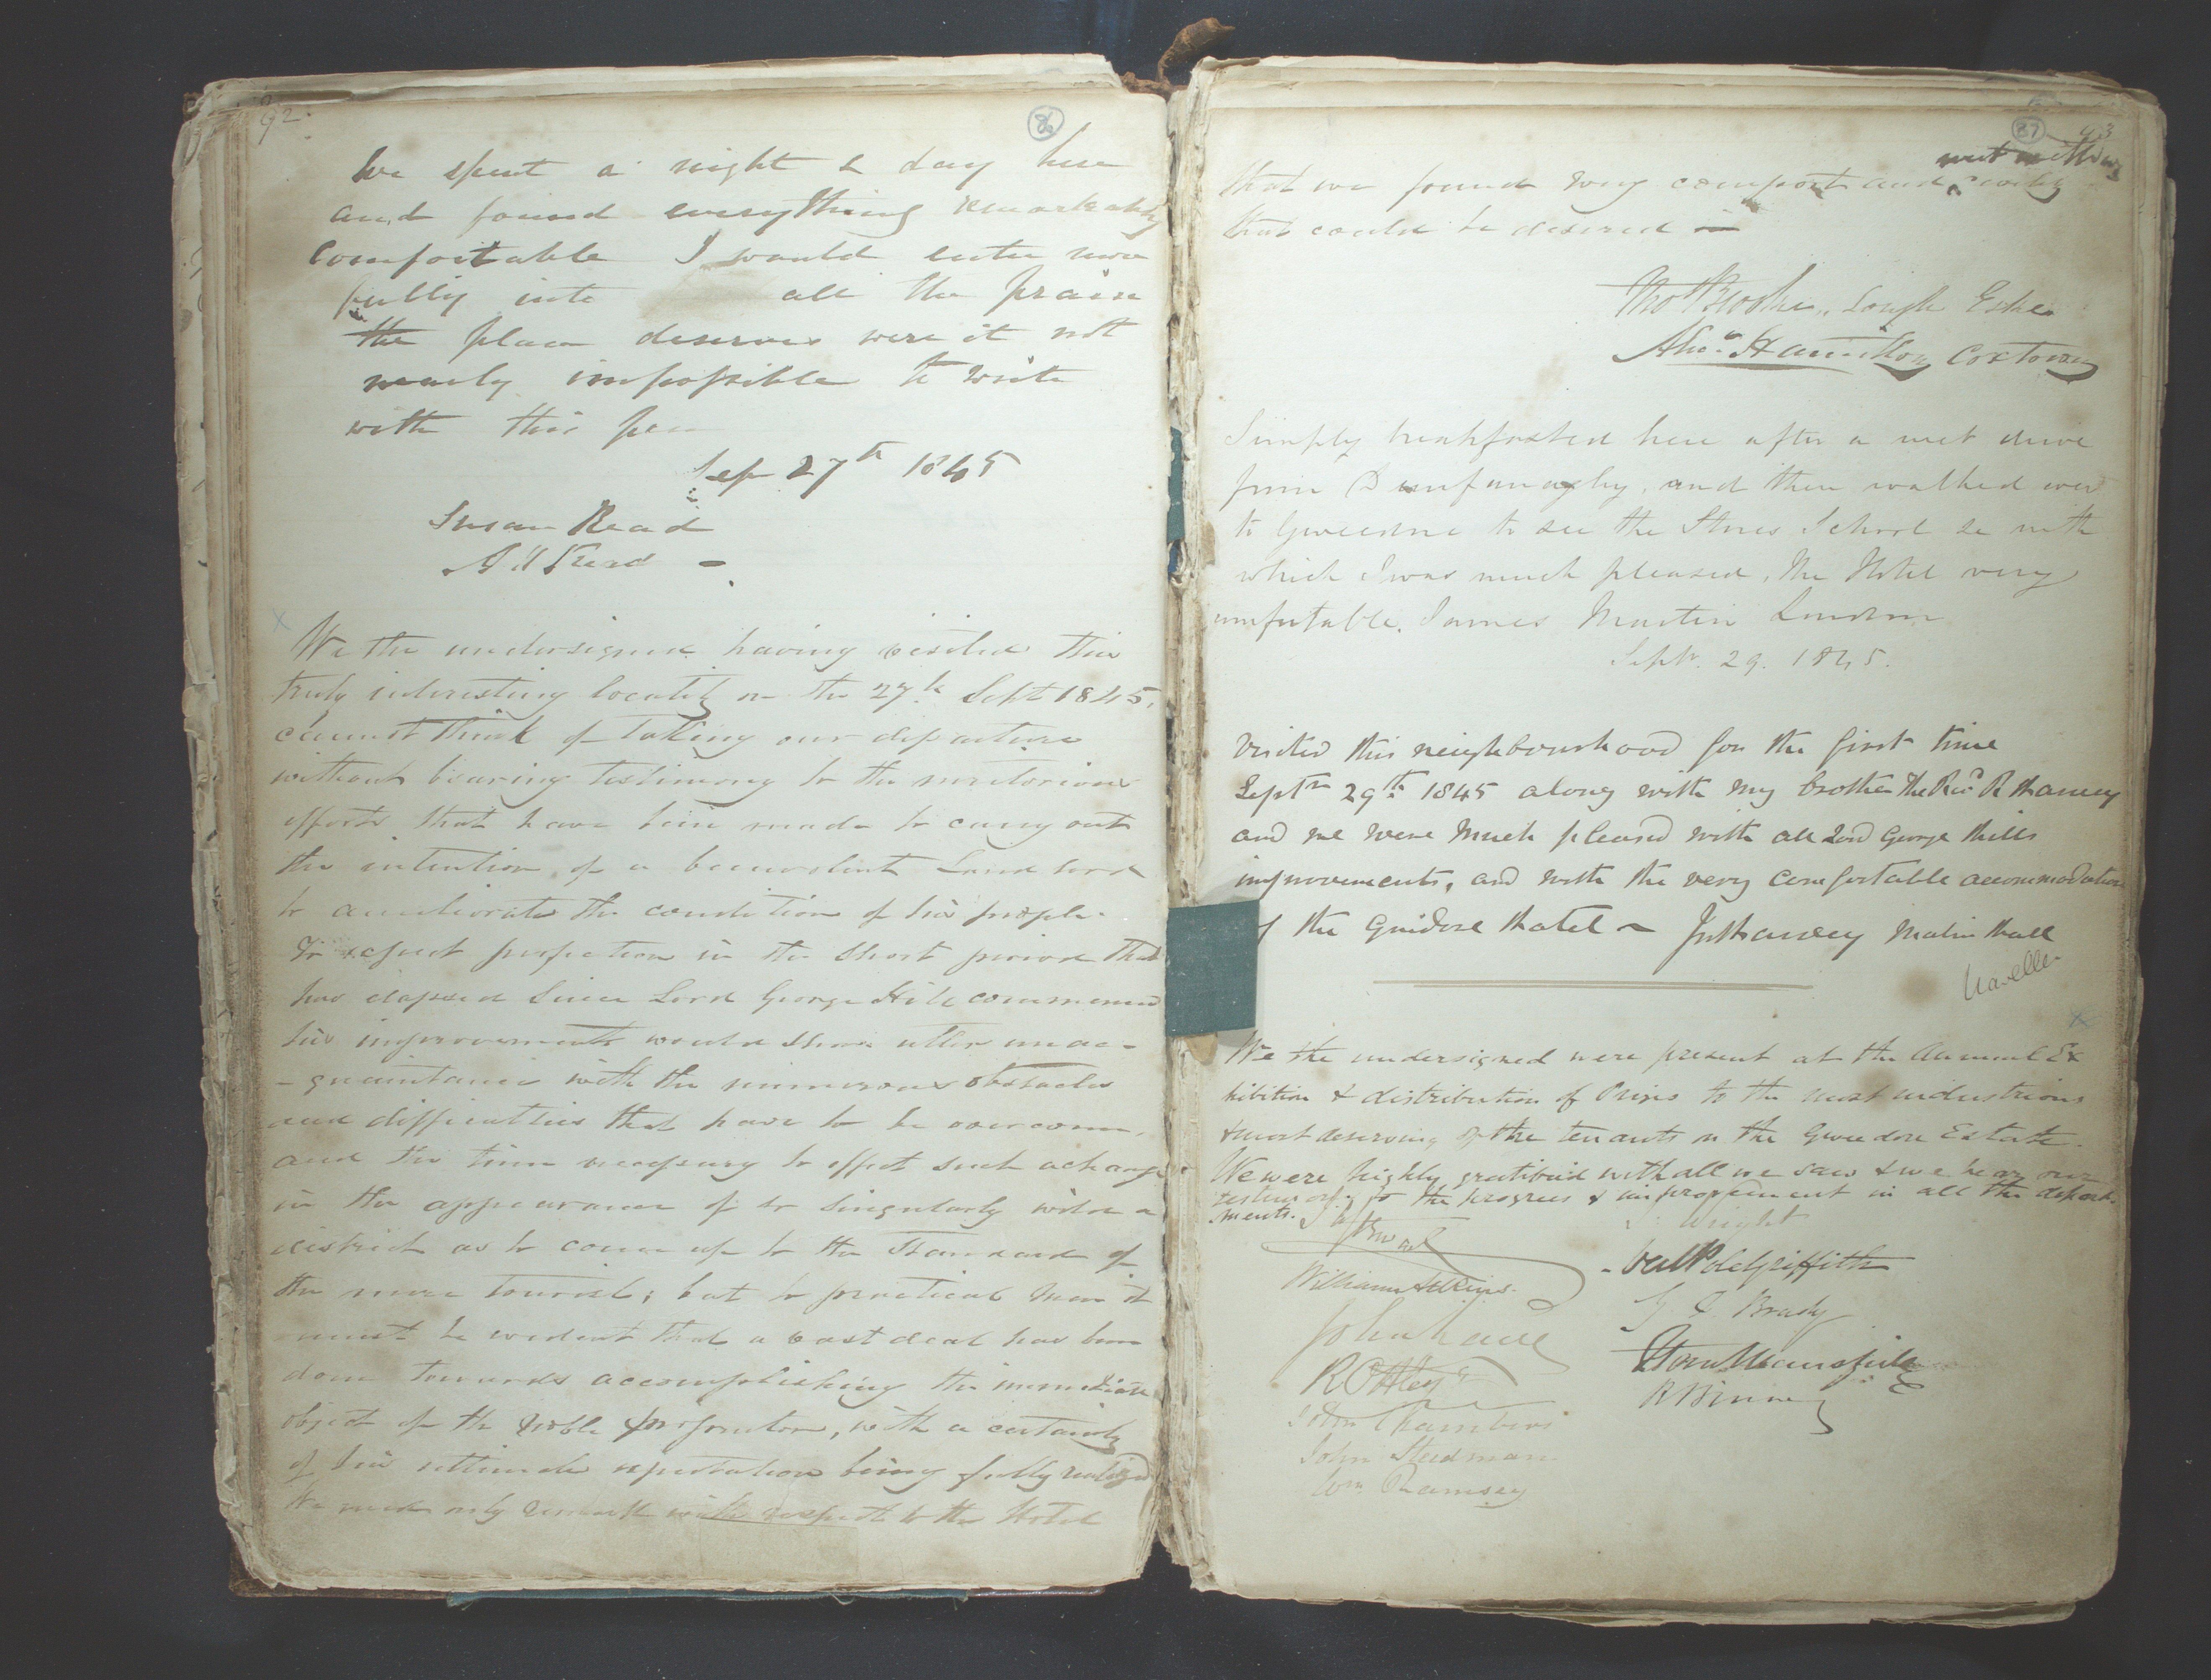 92
86
We spent a night & day here
and found everything remarkably
comfortable I would enter more
fully into all the praise
the place deserves were it not
nearly impossible to write
with this pen
Sep 27th 1845
Susan Read
Read
We the undersigned having visited this
truly interesting locality on the 27th Sept 1845,
cannot think of taking our departure
without bearing testimony to the meritorious
efforts that have been made to carry out
the intention of a benevolent Landlord
to ameliorate the condition of his people.
To expect perfection in the short period that
has elapsed since Lord George Hill commenced
his improvements would show utter unac-
-quaintance with the numerous obstacles
and difficulties that have to be overcome,
and the time necessary to effect such a change
in the appearance of so singularly wild a
district as to come up to the Standard of
the mere tourist; but to practical men it
must be evident that a vast deal has been
done towards accomplishing the immediate
object of the noble proprietor, with a certainty
of his ultimate expectation being fully realized
We need only remark with respect to the Hotel
87 93
met with every
that we found every comfort and civility
that could be desired
Thos Brooke, Lough Eske
Hamilton Coxtown
Simply breakfasted here after a wet drive
from Dunfanaghy, and then walked over
to Gweedore to see the Stores School &c with
which I was much pleased. The Hotel very
comfortable. James Martin London
Septr. 29. 1845.
Visited this neighbourhood for the first time
Septr 29th 1845 along with my brother The Revd R Harvey
and we were much pleased with all Lord George Hills
improvements, and with the very comfortable accommodation
of the Guidore Hotel ~ Jn Harvey Malin Hall
We the undersigned were present at the Annual Ex
hibition & distribution of Prizes to the most industrious
& most deserving of the tenants on the Gweedore Estate.
We were highly gratified with all we saw & we bear our
testimony to the progress & improvement in all the depart-
ments.
Wright
William Atkins.
Griffith
Brady
R Ottley
Mansfield
John Chambers
R Binney
John Stedman
Wm Ramsey